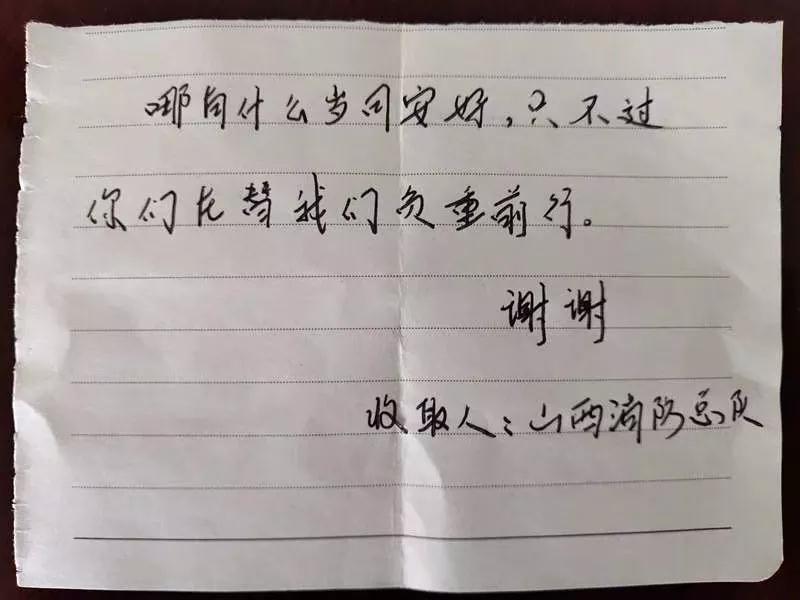 哪有什么岁月安好，只不过
你们在替我们负重前行。
谢谢
收取人：山西消防总队